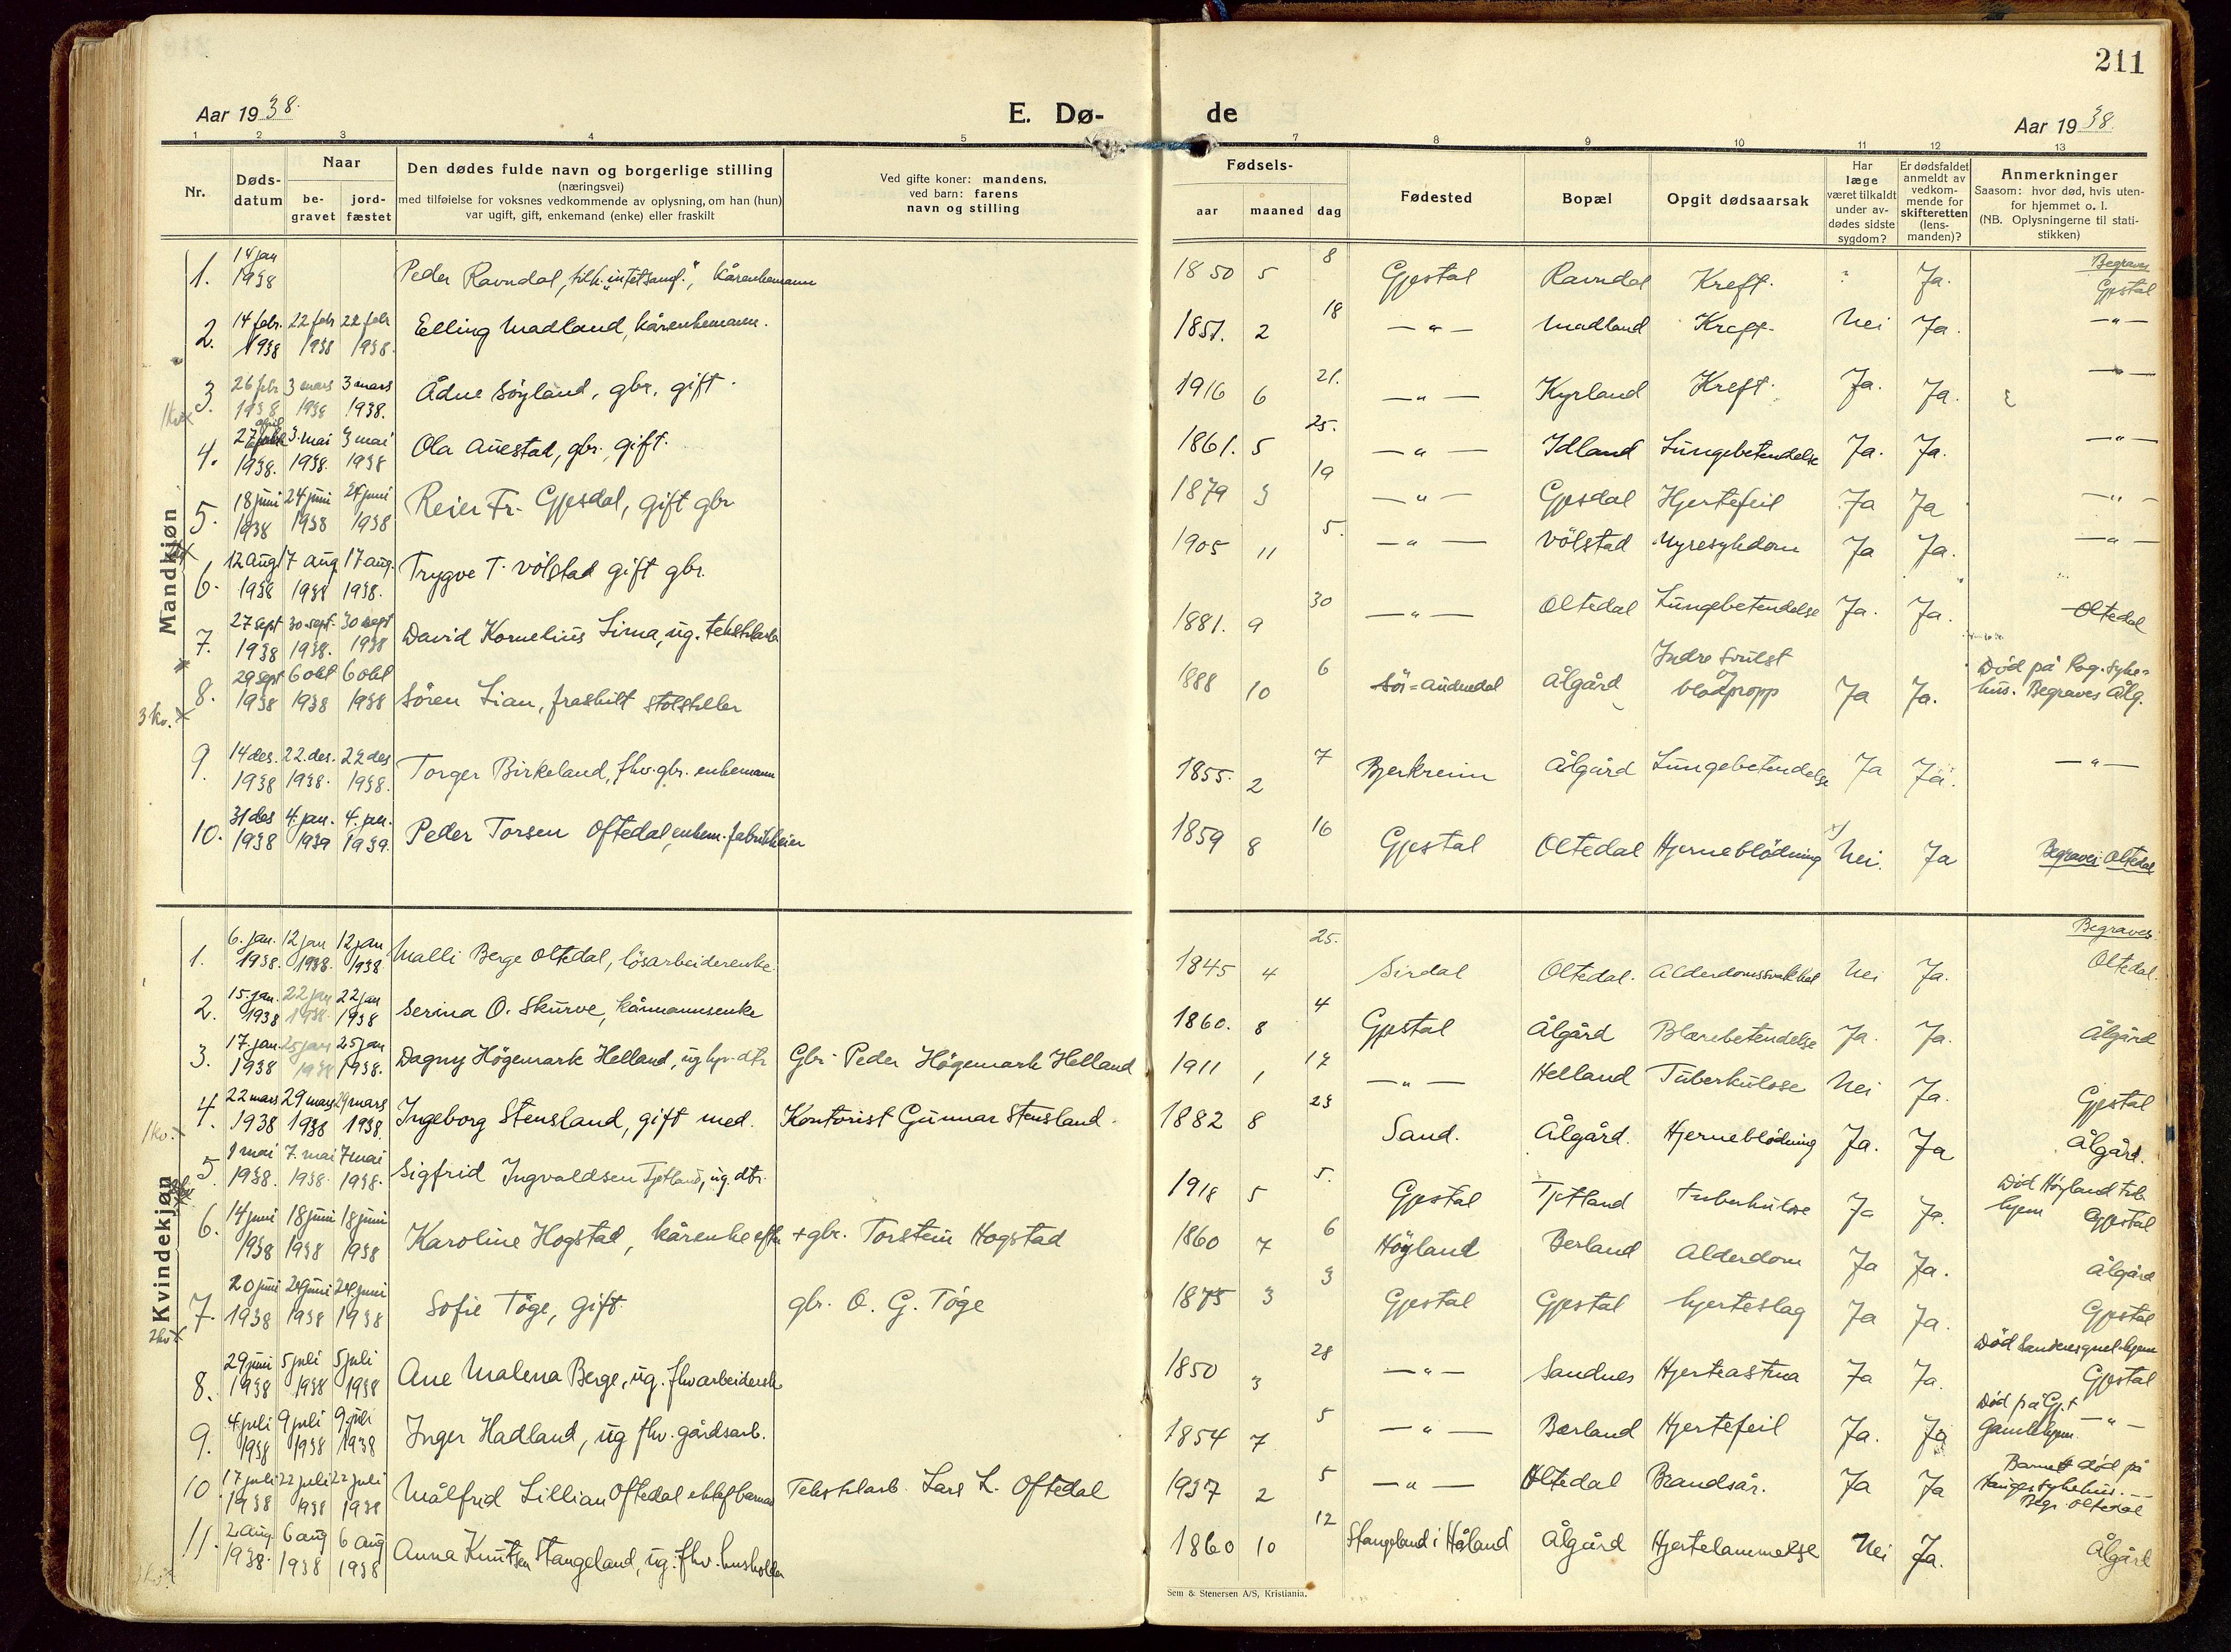 211
Aar 1938.
E. Dø-
de
Aar 1938.
1 2 3 4 5 7 8 9 10 11 12 13
Nr.
Døds-
datum
Naar
be-
gravet
jord-
fæstet
Den dødes fulde navn og borgerlige stilling
(næringsvei)
med tilføielse for voksnes vedkommende av oplysning, om han (hun)
var ugift, gift, enkemand (enke) eller fraskilt
Ved gifte koner: mandens,
ved barn: farens
navn og stilling
Fødsels-
aar maaned dag
Fødested
Bopæl
Opgit dødsaarsak
Har
læge
været tilkaldt
under av-
dødes sidste
sygdom?
Er dødsfaldet
anmeldt av
vedkom-
mende for
skifteretten
(lens-
manden)?
Anmerkninger
Saasom: hvor død, hvis uten-
for hjemmet o. l.
(NB. Oplysningerne til stati-
stikken)
Mandkjøn
1. 14 jan 1938 Peder Ravndal, kårenkemann 1850 5 8 Gjestal Ravndal Kreft. Ja. Begraves Gjestal
2. 14 febr. 1938 22 febr 1938 22 febr 1938. Elling Madland, kårenkemann. 1851. 2 18 —"— Madland Kreft. Nei Ja. —"—
3. 26 febr 1938 3 mars 1938 3 mars 1938. Ådne Söyland, gbr, gift. 1916 6 21. —"— Kyrland Kreft. Ja. Ja. —"—
4. 27 april 1938. 3. mai 1938. 3 mai 1938 Ola Auestad, gbr., gift. 1861. 5 25. —"— Idland Lungebetendelse Ja. Ja. —"—
5. 18 juni 1938 24 juni 1938 24 juni 1938 Reier Fr. Gjesdal, gift gbr 1879 3 19 —"— Gjesdal Hjertefeil Ja Ja —"—
6. 12 aug 1938 17 aug 1938 17 aug. 1938. Trygve T. Völstad gift gbr. 1905 11 5. —"— Völstad Nyresykdom Ja Ja. —"—
7. 27 sept 1938 30 sept. 1938. 30 sept 1938 David Kornelius Lima, ug. tekstilarb 1881. 9 30 —"— Oltedal Lungebetendelse Ja. Ja. Oltedal
8. 29 sept 1938 6 okt 1938 6 okt 1938 Sören Lian, fraskilt 1888 10 6 Sör=Audnedal Ålgård Indre svulst og blodpropp Ja Ja. Död på Rog. syke=hus. Begraves Ålg.
9. 14 des. 1938 22. des. 1938. 22 des 1938. Torger Birkeland, fhv. gbr. enkemann 1855. 2 7 Bjerkreim Ålgård Lungebetendelse Ja Ja. —"—
10. 31 des 1938 4. jan. 1939 4. jan. 1939. Peder Torsen Oftedal, enkem. fabrikkeier 1859 8 16 Gjestal Oltedal Hjerneblödning Nei. Ja Begraves Oltedal
Kvindekjøn
1. 6. jan. 1938. 12 jan 1938. 12 jan 1938. Malli Berge Oltedal, lösarbeiderenke. 1845 4 25. Sirdal Oltedal. Alderdomssvakhet Nei Ja. Begraves Oltedal.
2. 15. jan. 1938 22 jan 1938. 22 jan 1938 Serina O. Skurve, kårmannsenke 1860. 8 4 Gjestal Ålgård Blærebetendelse Ja. Ja. Ålgård
3. 17. jan. 1938 25 jan 1938 25 jan 1938. Dagny Högemark Helland, ug. dtr Gbr. Peder Högemark Helland 1911 1 17 —"— Helland Tuberkulose Nei Ja. Gjestal
4. 22 mars 1938 29 mars 1938 29 mars 1938. Ingeborg Stensland, gift med. Kontorist Gunnar Stensland. 1882 8 23 Sand. Ålgård. Hjerneblödning Ja. Ja Ålgård.
5. 1 mai 1938. 7. mai 1938. 7 mai 1938. Sigfrid Ingvaldsen Tjetland, ug. dtr. 1918 5 5. Gjestal Tjetland tuberkulose Ja Ja. Död Höyland tub. hjem Gjestal
6. 14 juni 1938 18 juni 1938 18 juni 1938 Karoline Hogstad, kårenke efter + gbr. Torstein Hogstad 1860 7 6 Höyland Berland Alderdom Ja Ja. Ålgård
7. 20 juni 1938 24 juni 1938 24 juni 1938 Sofie Töge, gift. gbr. O. G. Töge 1875 3 3 Gjestal Gjestal hjerteslag Ja Ja. Gjestal
8. 29 juni 1938 5 juli 1938 5 juli 1938 Ane Malena Berge, ug. fhv arbeiderske 1850 3 28 —"— Sandnes Hjerteastma Ja Ja. Död Gjestal
9. 4. juli 1938 9 juli 1938 9. juli 1938 Inger Hadland, ug fhv. gårdsarb. 1854 7 5 —"— Bærland Hjertefeil Ja. Ja Död på Gj. Gamlehjem —"—
10. 17 juli 1938 22 juli 1938 22 juli 1938 Målfrid Lillian Oftedal ektef barn Tekstilarb. Lars L. Oftedal 1937 2 5 —"— Oltedal Brandsår. Ja Ja Barnet död på Hauges sykehus. Begr. Oltedal
11. 2 aug. 1938. 6 aug 1938 6 aug 1938 Anna Knutsen Stangeland, ug. fhv. husholder 1860 10 12 Stangeland i Håland Ålgård Hjertelammelse Nei Ja. Ålgård
Sem & Stenersen A/S, Kristiania.